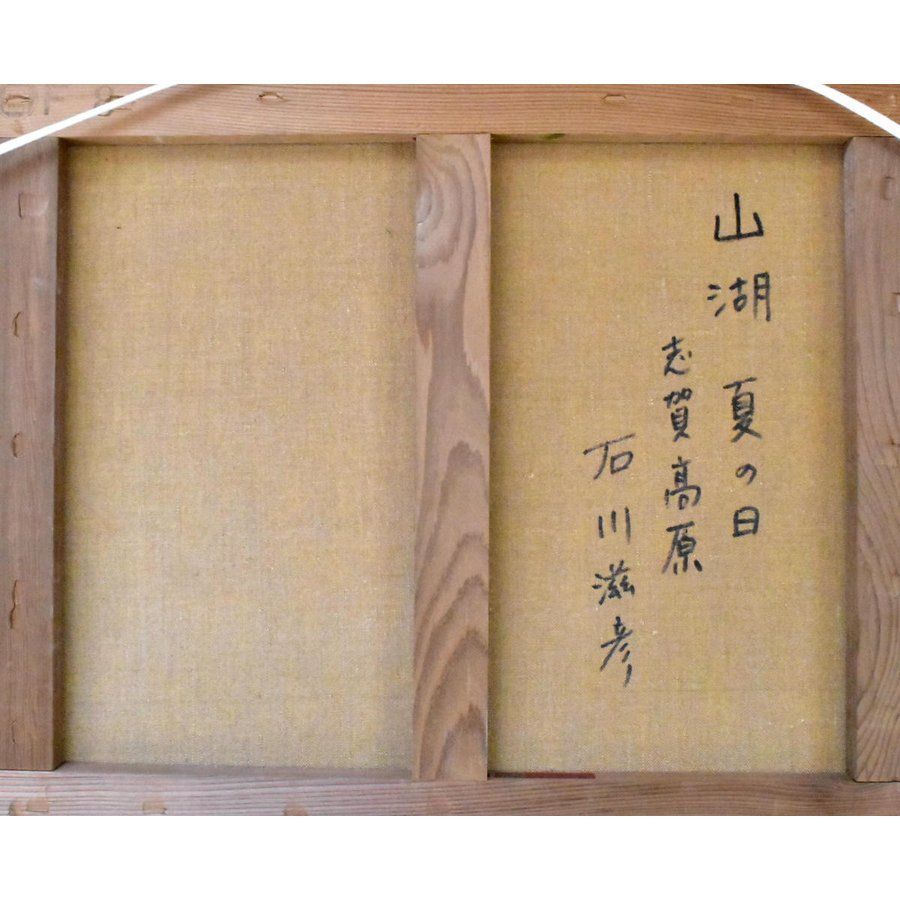 山湖 夏の日
志賀高原
石川滋彦